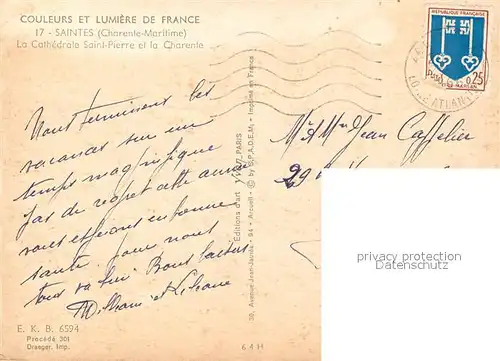 COULEURS ET LUMIÈRE DE FRANCE
17 - SAINTES (Charente-Maritime)
La Cathédrale Saint-Pierre et la Charente
Nous terminons les
vacances sur un
temps magnifique
pas de regret cette année
vous espérons en bonne
santé pour nous
tous va bien Bons baisers
et Liliane
E. K. B. 6594
Procédé 301
Draeger, Imp.
Editions d'art YVON PARIS
30, Avenue Jean-Jaurès - 94 - Arcueil - © by S.P.A.D.E.M. - Imprimé en France
6 4 H
REPUBLIQUE FRANCAISE
0,25
MONT-DE-MARSAN
LOIRE ATLANTIQUE
M & Mme Jean Caffelier
29
privacy protection
Datenschutz